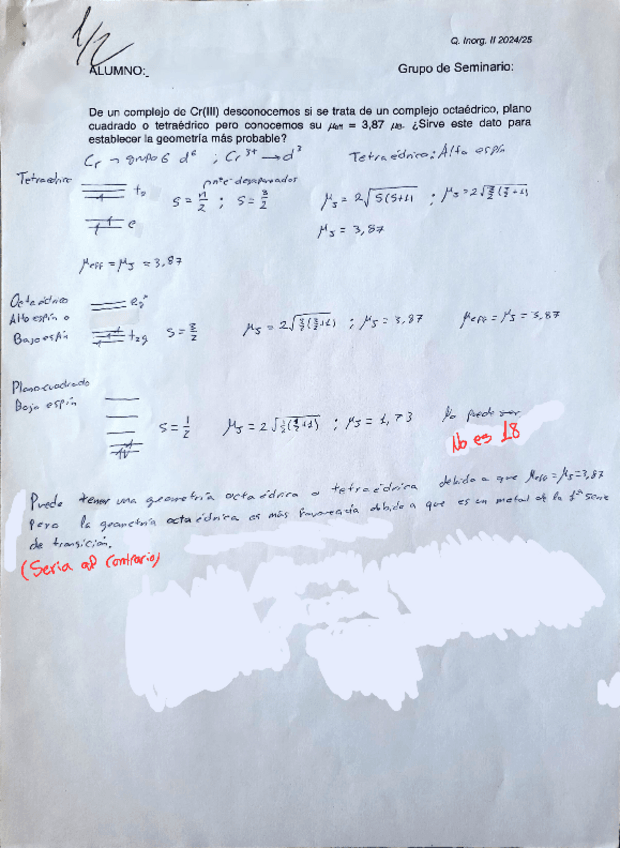 1/2
Q. Inorg. II 2024/25
ALUMNO:
Grupo de Seminario:
De un complejo de Cr(III) desconocemos si se trata de un complejo octaédrico, plano
cuadrado o tetraédrico pero conocemos su μeff = 3,87 μB. ¿Sirve este dato para
establecer la geometría más probable?
Cr → grupo 6 d⁶ ; Cr³⁺ → d³
Tetraédrico: Alto espín
Tetraédrico
t₂
e
nº e⁻ desapareados
S = n/2 ; S = 3/2
μs = 2√S(S+1) ; μs = 2√3/2(3/2+1)
μs = 3,87
μeff = μs = 3,87
Octaédrico
Alto espín o
Bajo espín
eg*
t2g
S = 3/2
μs = 2√3/2(3/2+1) ; μs = 3,87
μeff = μs = 3,87
Plano cuadrado
Bajo espín
S = 1/2
μs = 2√1/2(1/2+1) ; μs = 1,73
No puede ser
No es 18
Puede tener una geometría octaédrica o tetraédrica debido a que μeff = μs = 3,87
Pero la geometría octaédrica es más favorecida debido a que es un metal de la 1ª serie
de transición.
(Seria al contrario)